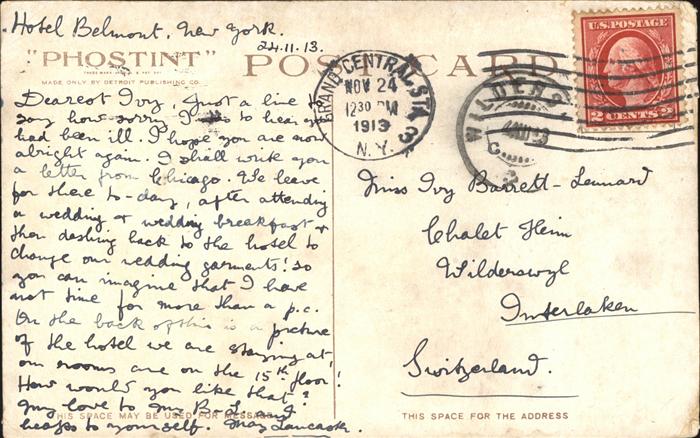 Hotel Belmont, New York.
24.11.13.
"PHOSTINT" POST CARD
MADE ONLY BY DETROIT PUBLISHING CO.
Dearest Ivy, Just a line to
say how sorry I was to hear you
had been ill. I hope you are now
alright again. I shall write you
a letter from Chicago. We leave
for there to-day, after attending
a wedding & wedding breakfast &
then dashing back to the hotel to
change our wedding garments! So
you can imagine that I have
not time for more than a p.c.
On the back of this is a picture
of the hotel we are staying at,
our rooms are on the 15th floor!
How would you like that?
My love to Mrs B-L and
heaps to yourself. May Lancaster.
THIS SPACE MAY BE USED FOR MESSAGE
GRAND CENTRAL STA.
NOV 24
12 30 PM
1913
N.Y.
3
WILDERS
U.S. POSTAGE
2 CENTS 2
Miss Ivy Barrett-Lennard
Chalet Heim
Wilderswyl
Interlaken
Switzerland.
THIS SPACE FOR THE ADDRESS